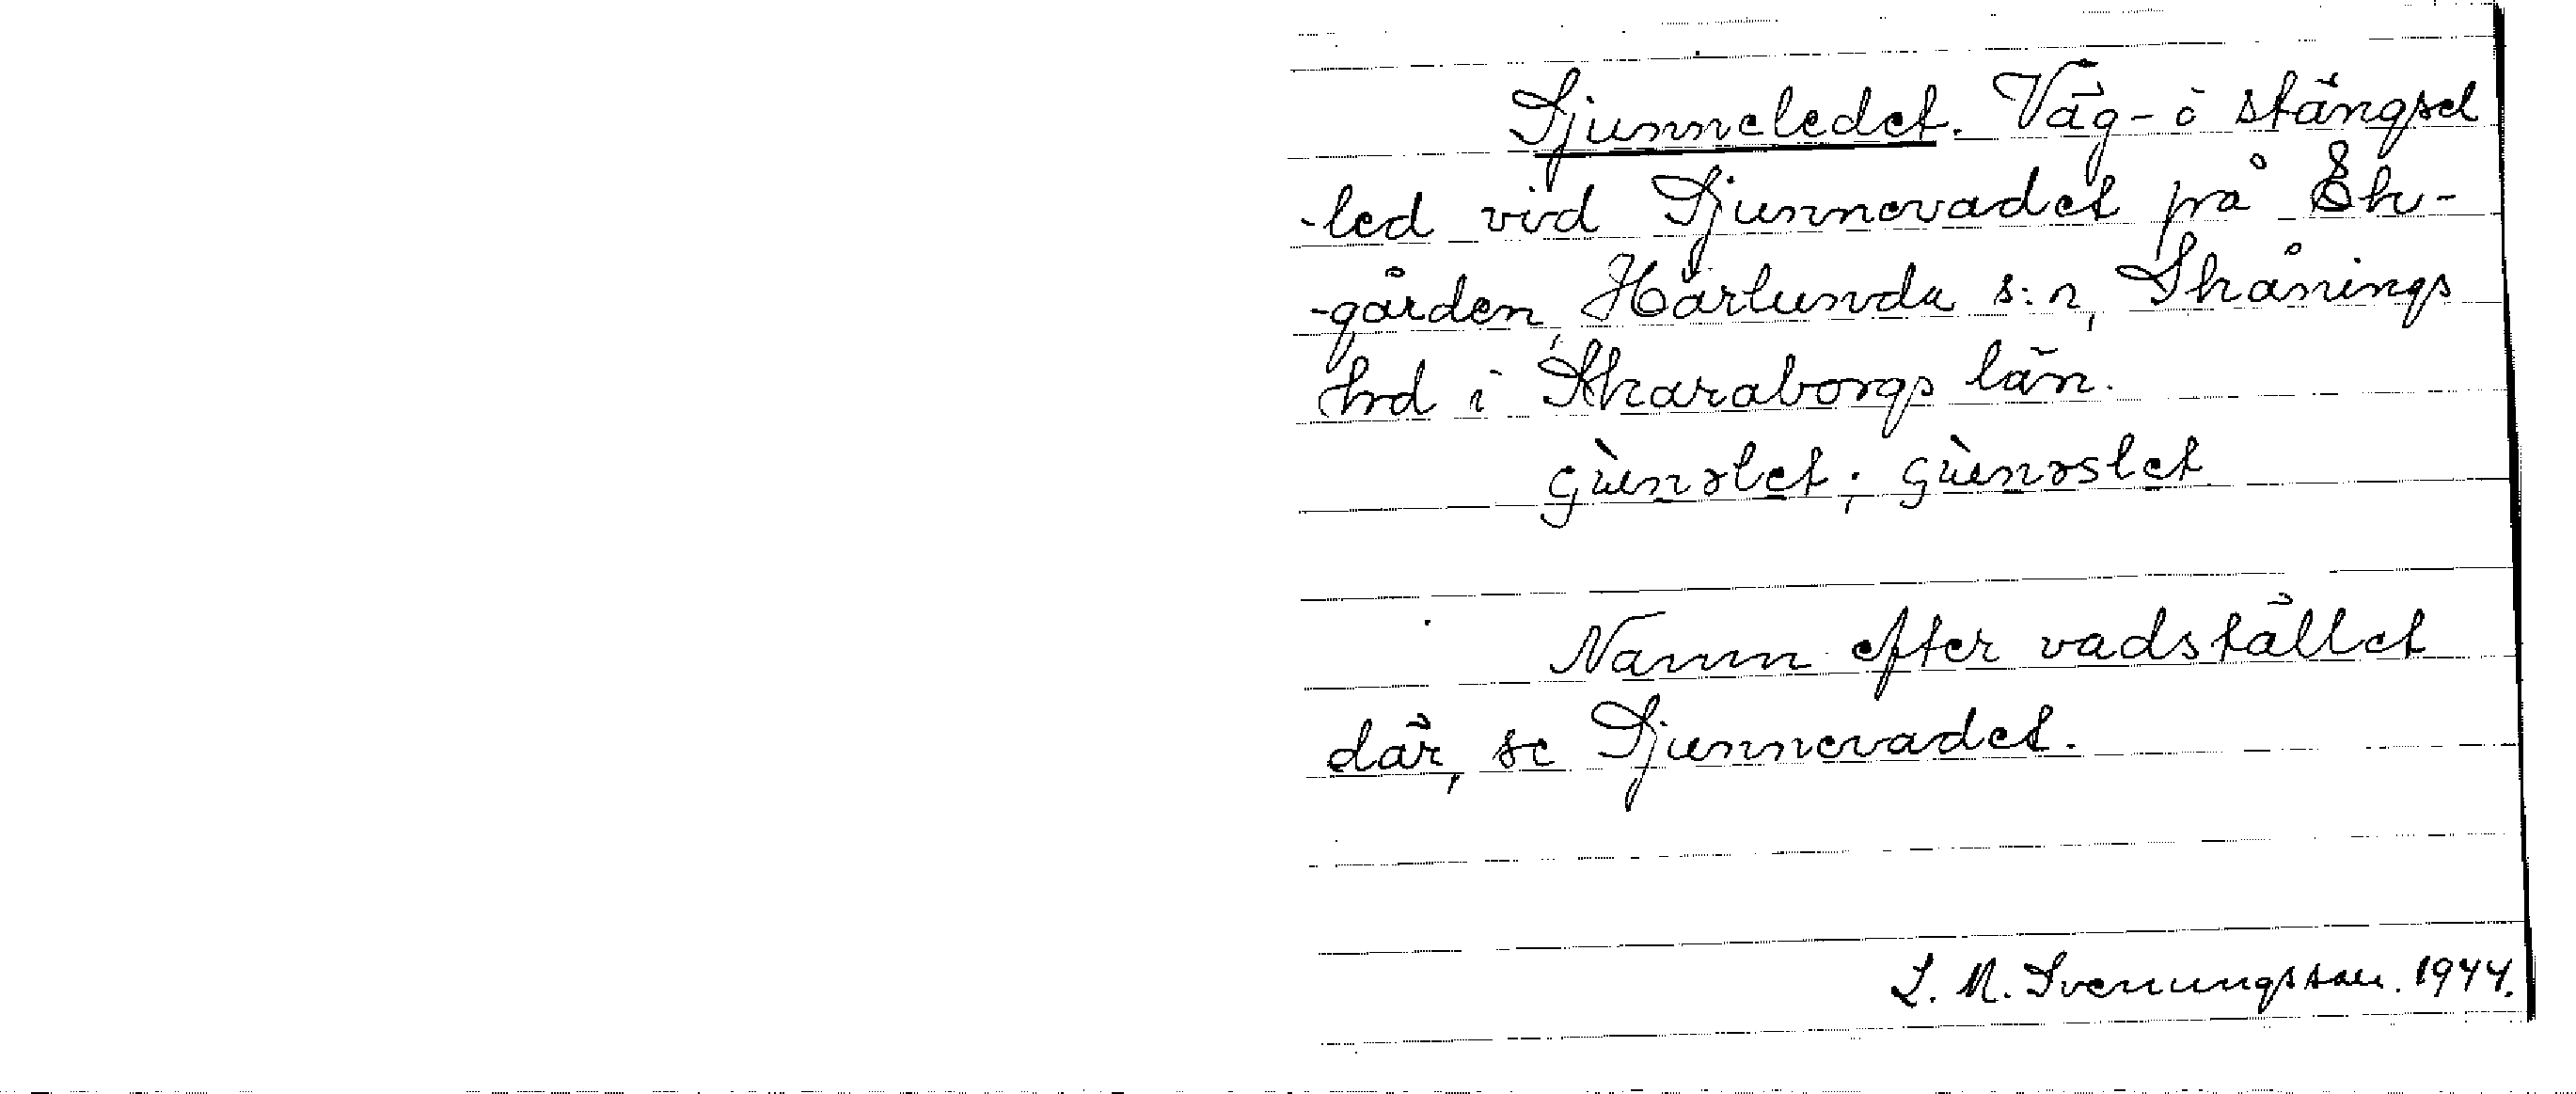 Sjunneledet. Väg- o stängsel
-led vid Sjunnevadet på Ek-
-gården, Härlunda s:n, Skånings
hrd i Skaraborgs län.
Namn efter vadstället
där, se Sjunnevadet.
L. M. Svenungsson. 1944.